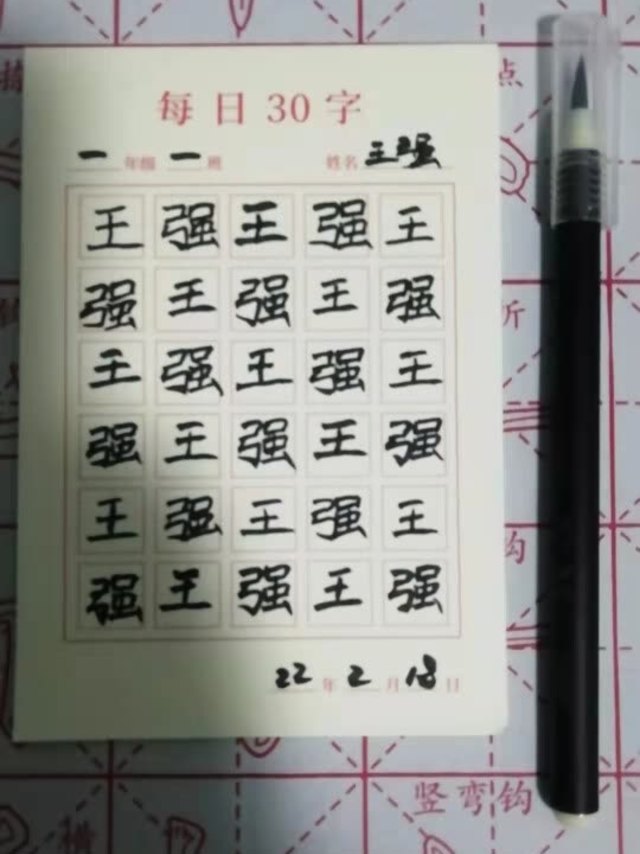 每日30字
一年级一班 姓名王强
王强王强王
强王强王强
王强王强王
强王强王强
王强王强王
强王强王强
22年2月18日
点
折
钩
竖弯钩
横